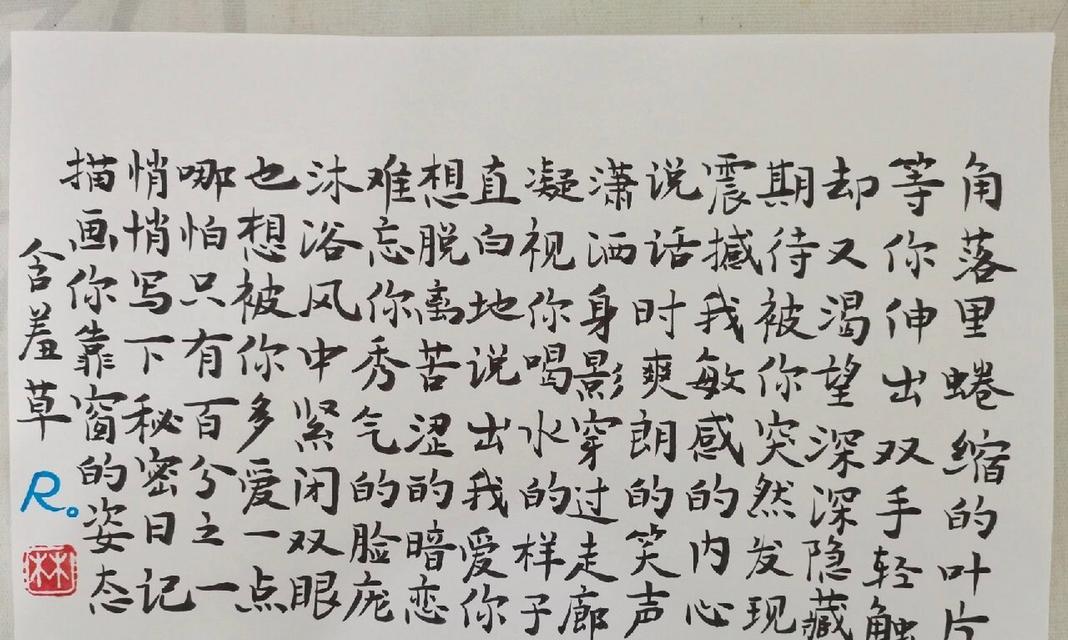 角落里蜷缩的叶片
等你伸出双手轻触
却又渴望深深隐藏
期待被你突然发现
震撼我敏感的内心
说话时爽朗的笑声
潇洒身影穿过走廊
凝视你喝水的样子
直白地说出我爱你
想脱离苦涩的暗恋
难忘你秀气的脸庞
沐浴风中紧闭双眼
也想被你多爱一点
哪怕只有百分之一
悄悄写下秘密日记
描画你靠窗的姿态
含羞草
R。
林